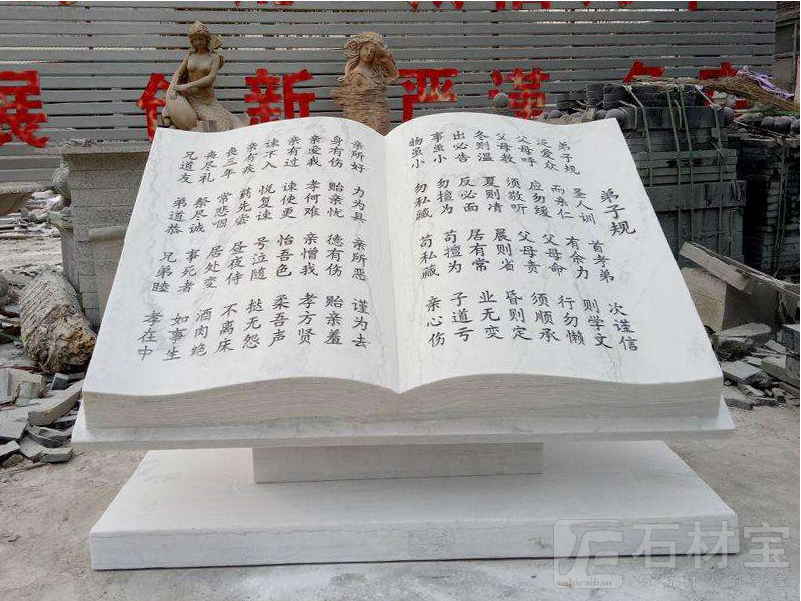 展 创新 严谨
弟子规
弟子规 圣人训 首孝弟 次谨信
泛爱众 而亲仁 有余力 则学文
父母呼 应勿缓 父母命 行勿懒
父母教 须敬听 父母责 须顺承
冬则温 夏则凊 晨则省 昏则定
出必告 反必面 居有常 业无变
事虽小 勿擅为 苟擅为 子道亏
物虽小 勿私藏 苟私藏 亲心伤
亲所好 力为具 亲所恶 谨为去
身有伤 贻亲忧 德有伤 贻亲羞
亲爱我 孝何难 亲憎我 孝方贤
亲有过 谏使更 怡吾色 柔吾声
谏不入 悦复谏 号泣随 挞无怨
亲有疾 药先尝 昼夜侍 不离床
丧三年 常悲咽 居处变 酒肉绝
丧尽礼 祭尽诚 事死者 如事生
兄道友 弟道恭 兄弟睦 孝在中
石材宝